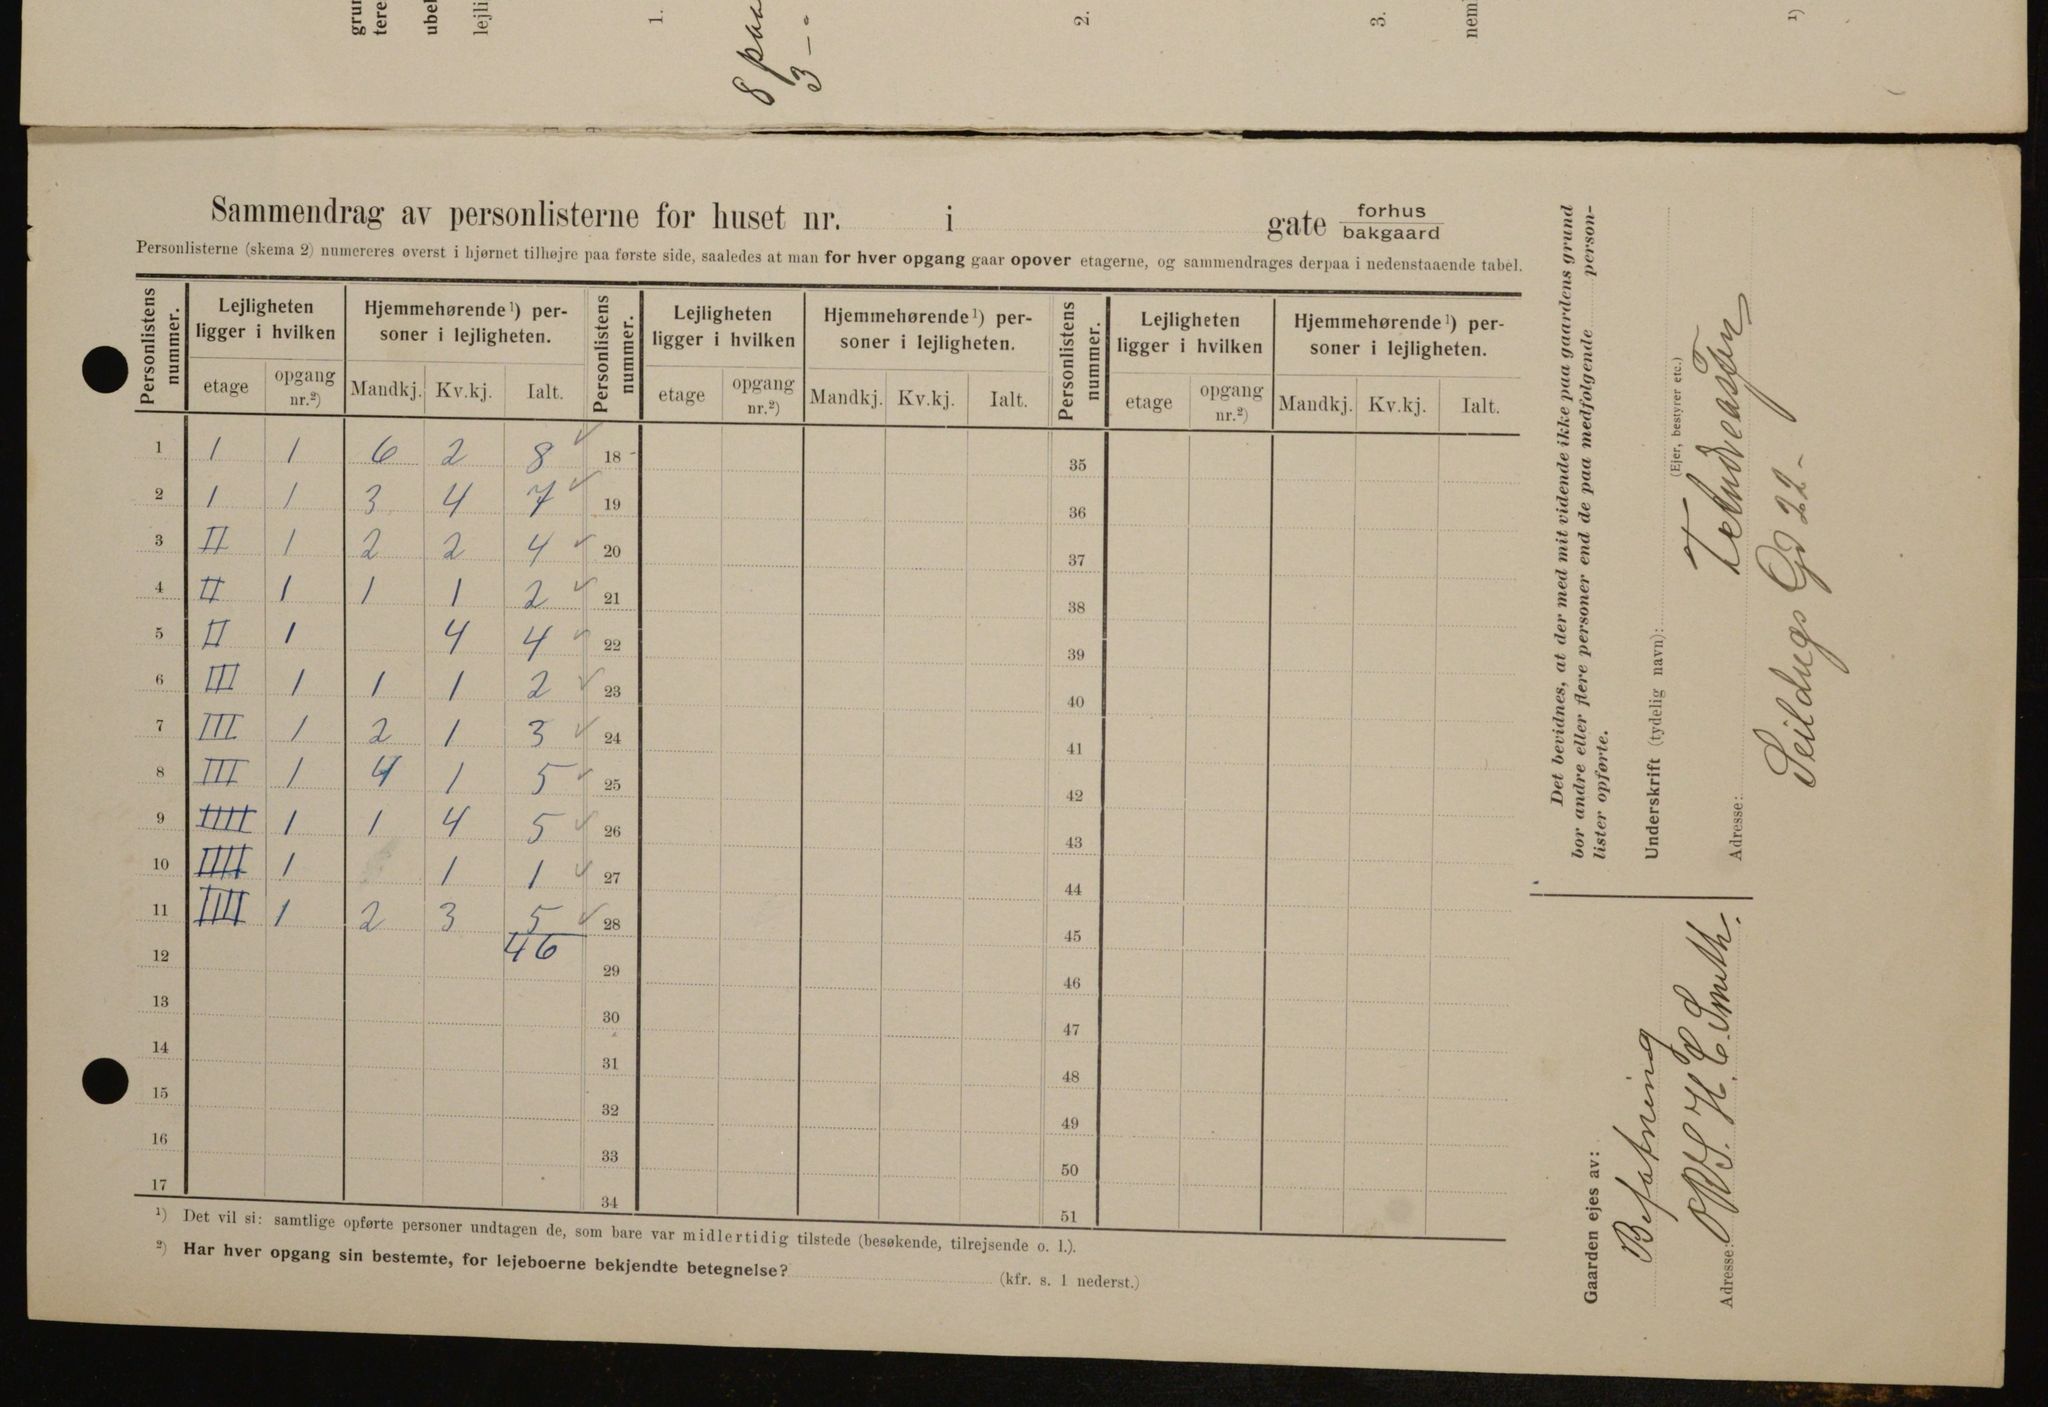 grun
tere
ubel
lejli
1.
8 paa
3 - -
2.
3.
nemi
1)
Sammendrag av personlisterne for huset nr. i gate forhus
bakgaard
Personlisterne (skema 2) numereres øverst i hjørnet tilhøjre paa første side, saaledes at man for hver opgang gaar opover etagerne, og sammendrages derpaa i nedenstaaende tabel.
Personlistens nummer. Lejligheten ligger i hvilken Hjemmehørende ¹) personer i lejligheten. Personlistens nummer. Lejligheten ligger i hvilken Hjemmehørende ¹) personer i lejligheten. Personlistens nummer. Lejligheten ligger i hvilken Hjemmehørende ¹) personer i lejligheten.
etage opgang nr.²) Mandkj. Kv.kj. Ialt. etage opgang nr.²) Mandkj. Kv.kj. Ialt. etage opgang nr.²) Mandkj. Kv.kj. Ialt.
1 I 1 6 2 8 ✓ 18 35
2 I 1 3 4 7 ✓ 19 36
3 II 1 2 2 4 ✓ 20 37
4 II 1 1 1 2 ✓ 21 38
5 II 1 4 4 ✓ 22 39
6 III 1 1 1 2 ✓ 23 40
7 III 1 2 1 3 ✓ 24 41
8 III 1 4 1 5 ✓ 25 42
9 IIII 1 1 4 5 ✓ 26 43
10 IIII 1 1 1 ✓ 27 44
11 IIII 1 2 3 5 ✓ 28 45
12 46 29 46
13 30 47
14 31 48
15 32 49
16 33 50
17 34 51
¹) Det vil si: samtlige opførte personer undtagen de, som bare var midlertidig tilstede (besøkende, tilrejsende o. l.).
²) Har hver opgang sin bestemte, for lejeboerne bekjendte betegnelse? (kfr. s. 1 nederst.)
Det bevidnes, at der med mit vidende ikke paa gaardens grund
bor andre eller flere personer end de paa medfølgende person-
lister opførte.
Underskrift (tydelig navn):
(Ejer, bestyrer etc.)
Andreassen
Adresse:
Seildugs Gd 22 -
Gaarden ejes av:
Befatning
Adresse: O.R.S. H. E. Smith.